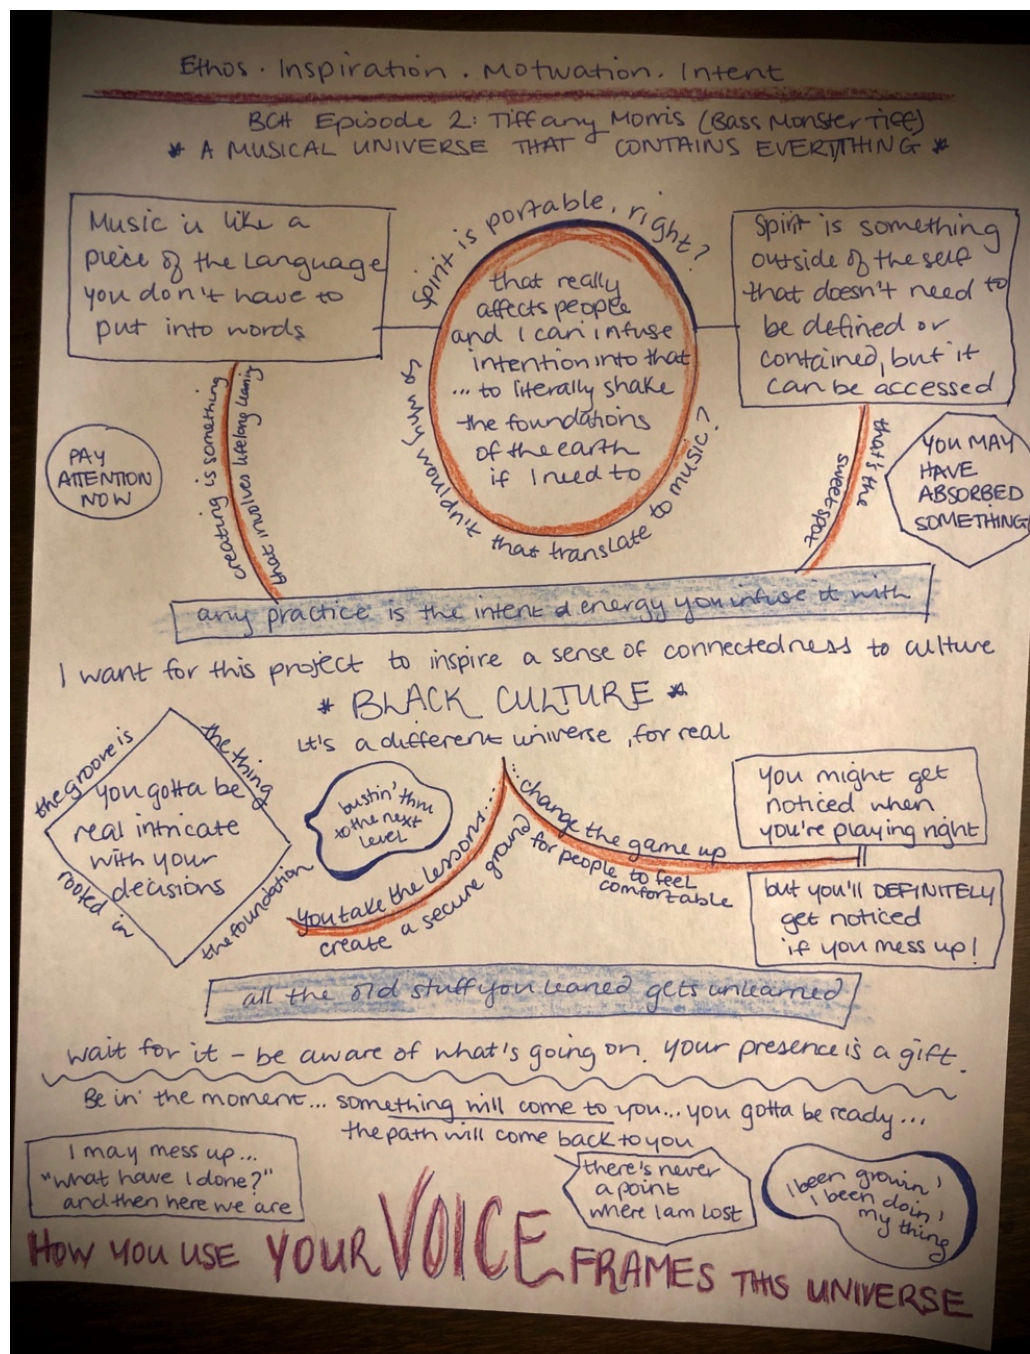 Ethos · Inspiration · Motivation · Intent
BCH Episode 2: Tiffany Morris (Bass Monster Tiff)
* A MUSICAL UNIVERSE THAT CONTAINS EVERYTHING *
Music is like a
piece of the language
you don't have to
put into words
Spirit is portable, right?
that really
affects people
and I can infuse
intention into that
... to literally shake
the foundations
of the earth
if I need to
so why wouldn't that translate to music?
Spirit is something
outside of the self
that doesn't need to
be defined or
contained, but it
can be accessed
creating is something
that involves lifelong learning
PAY
ATTENTION
NOW
that's the
sweet spot
YOU MAY
HAVE
ABSORBED
SOMETHING
any practice is the intent & energy you infuse it with
I want for this project to inspire a sense of connectedness to culture
* BLACK CULTURE *
it's a different universe, for real
the groove is
the thing
rooted in
the foundation
you gotta be
real intricate
with your
decisions
bustin' thru
to the next
level
you take the lessons....
create a secure ground
...change the game up
for people to feel
comfortable
you might get
noticed when
you're playing right
but you'll DEFINITELY
get noticed
if you mess up!
all the old stuff you leaned gets unlearned
wait for it – be aware of what's going on. your presence is a gift.
Be in the moment... something will come to you... you gotta be ready...
the path will come back to you
I may mess up...
"what have I done?"
and then here we are
there's never
a point
where I am lost
I been growin'
I been doin'
my thing
HOW YOU USE YOUR VOICE FRAMES THIS UNIVERSE